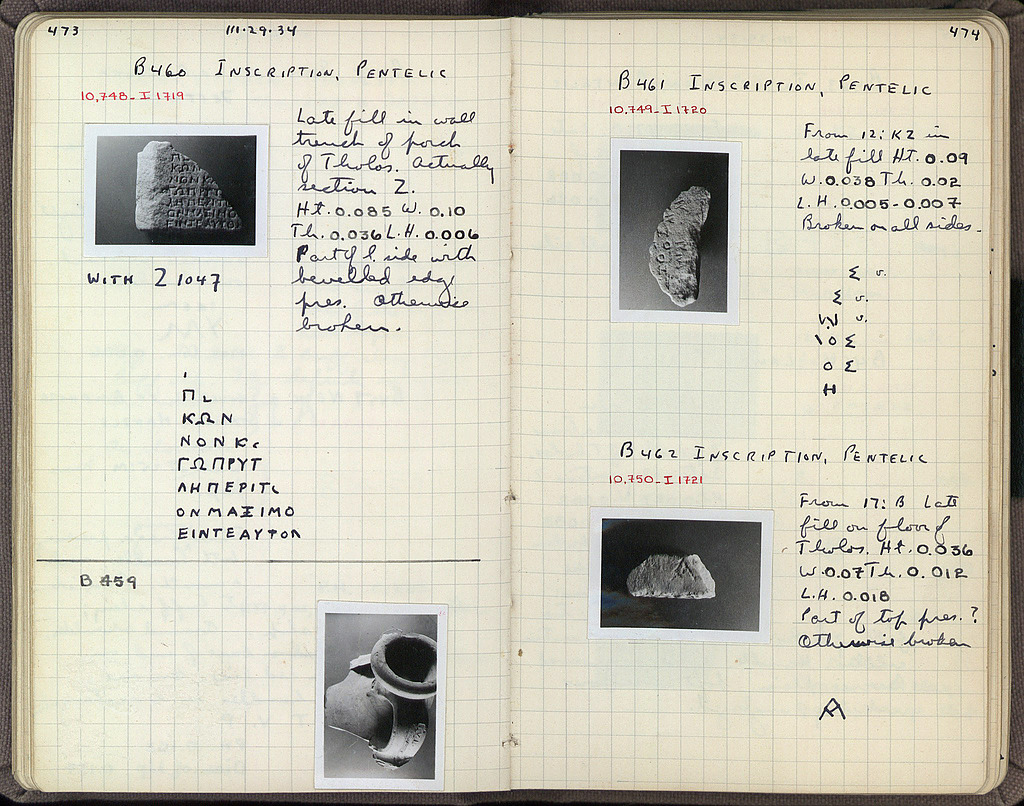 473
III·29·34
B460 INSCRIPTION, PENTELIC
10,748-I 1719
Late fill in wall
trench of porch
of Tholos. Actually
section Z.
Ht. 0.085 W. 0.10
Th. 0.036 L.H. 0.006
Part of l. side with
bevelled edge
pres. Otherwise
broken.
WITH Z 1047
Π
ΚΩΝ
ΝΟΝΚ
ΓΩΠΡΥΤ
ΛΗΠΕΡΙΤ
ΟΝΜΑΞΙΜΟ
ΕΙΝΤΕΑΥΤΟΛ
B 459
474
B461 INSCRIPTION, PENTELIC
10,749-I 1720
From 12: KZ in
late fill Ht. 0.09
W. 0.038 Th. 0.02
L.H. 0.005-0.007
Broken on all sides.
Σ v.
Σ v.
v.
\ΟΣ
ΟΣ
Η
B462 INSCRIPTION, PENTELIC
10,750-I 1721
From 17: B Late
fill on floor of
Tholos. Ht. 0.036
W. 0.07 Th. 0.012
L.H. 0.018
Part of top pres.?
Otherwise broken